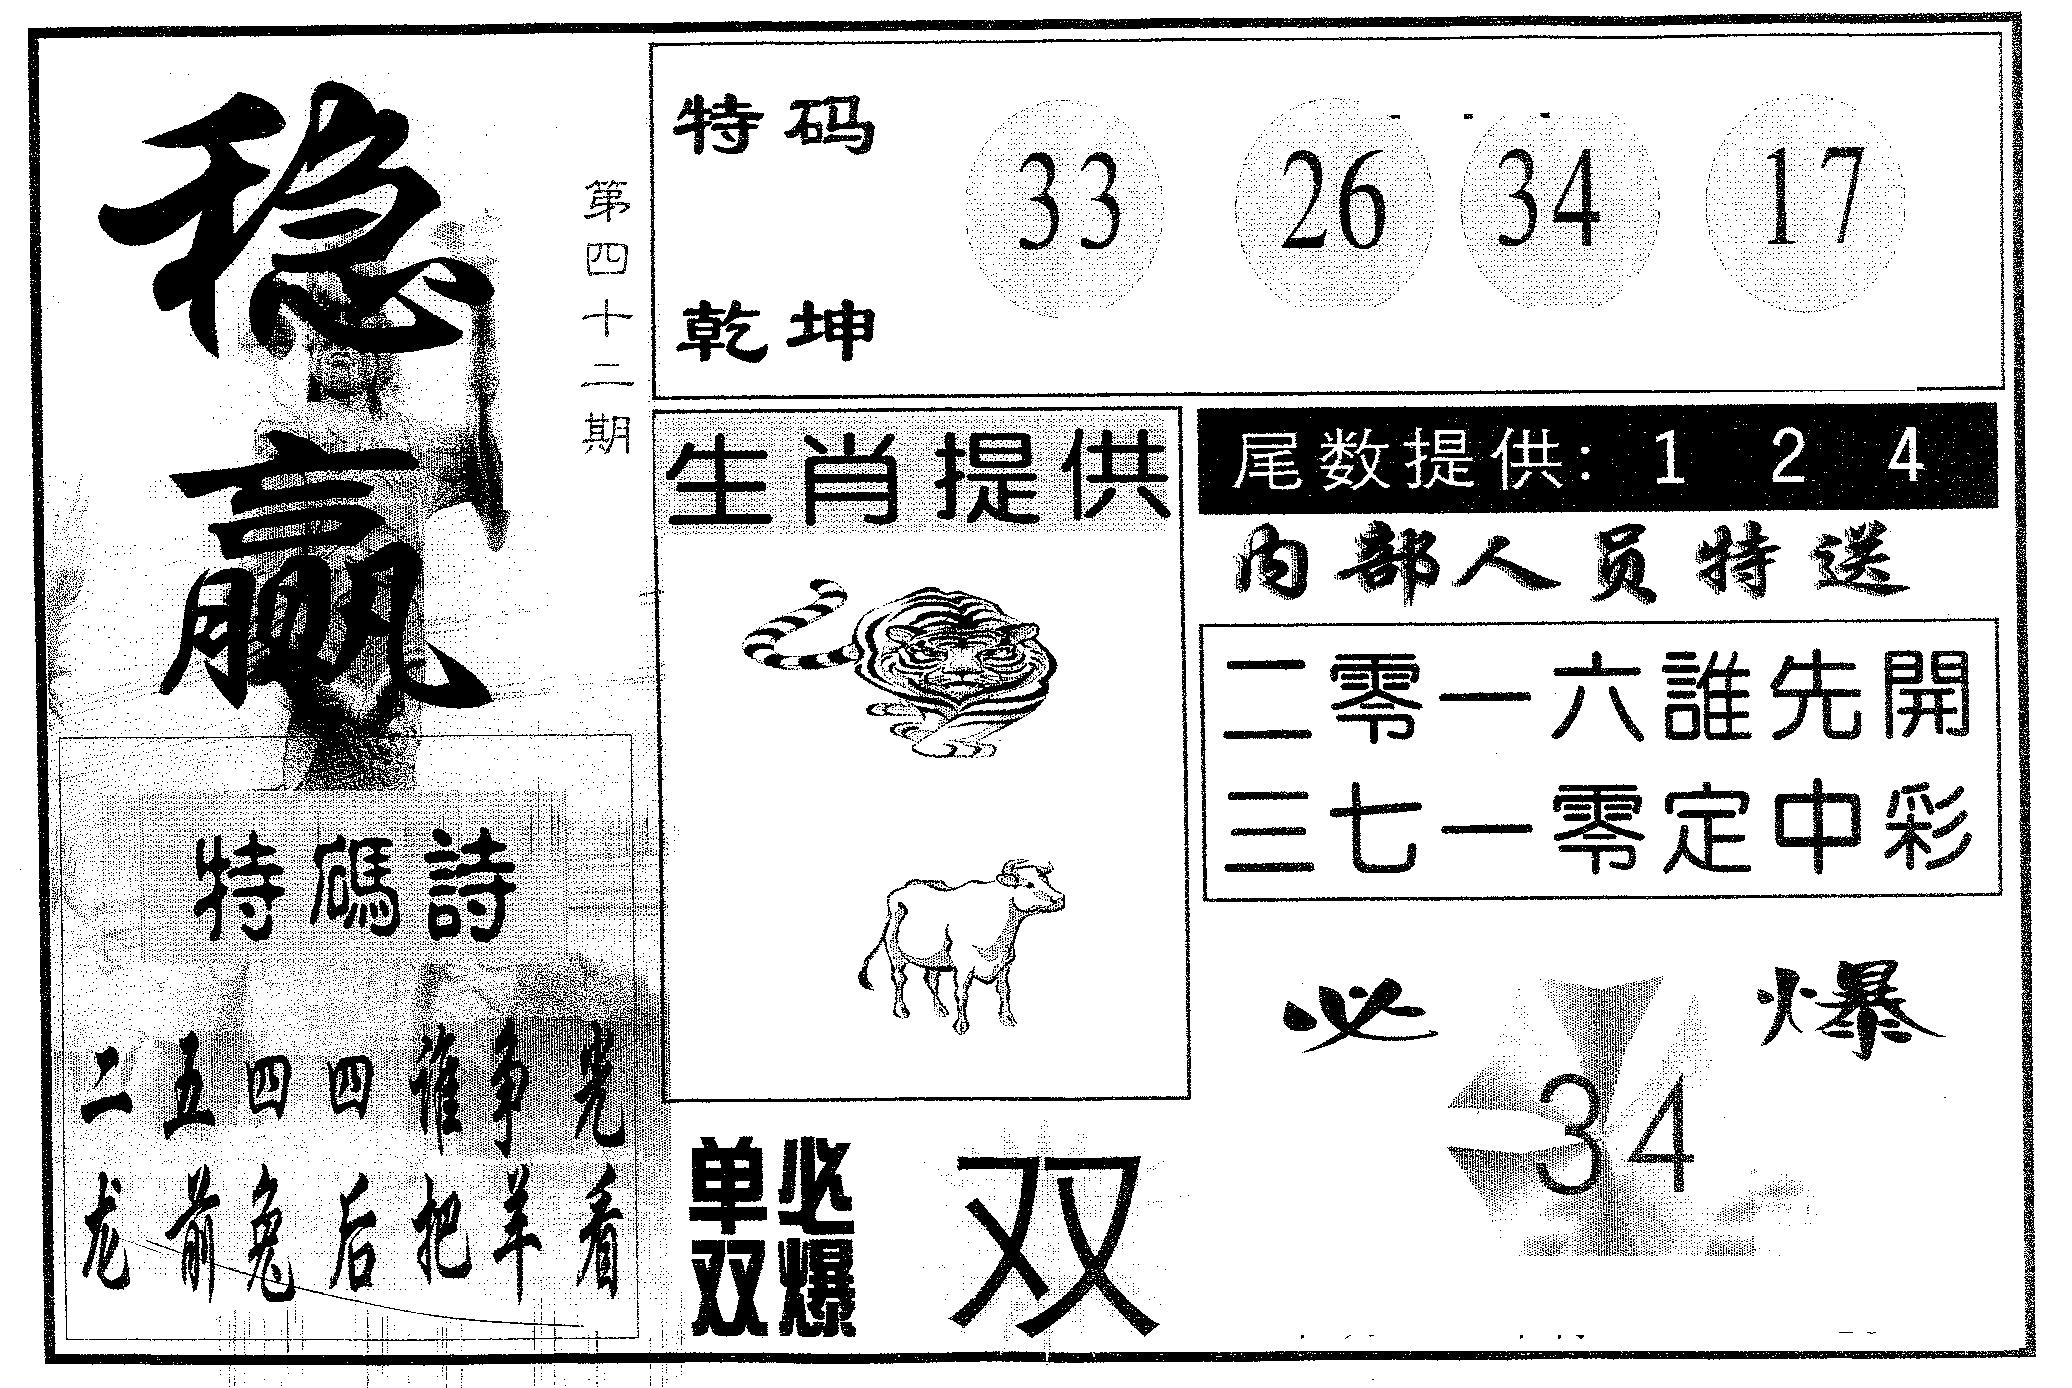 稳赢
第四十二期
特码诗
二五四四谁争光
龙前兔后把羊看
特码
乾坤
33 26 34 17
生肖提供
尾数提供: 1 2 4
内部人员特送
二零一六誰先開
三七一零定中彩
必爆
34
单双
必爆
双